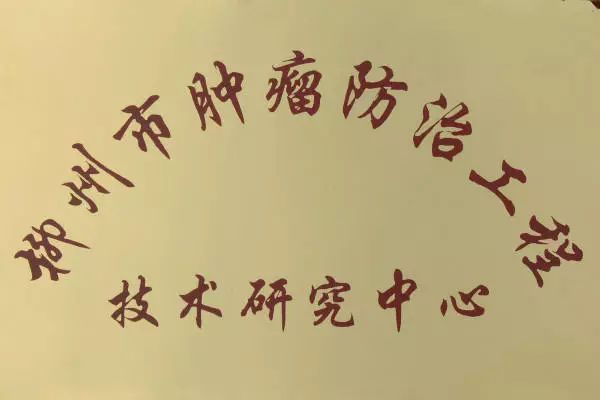 柳州市肿瘤防治工程
技术研究中心